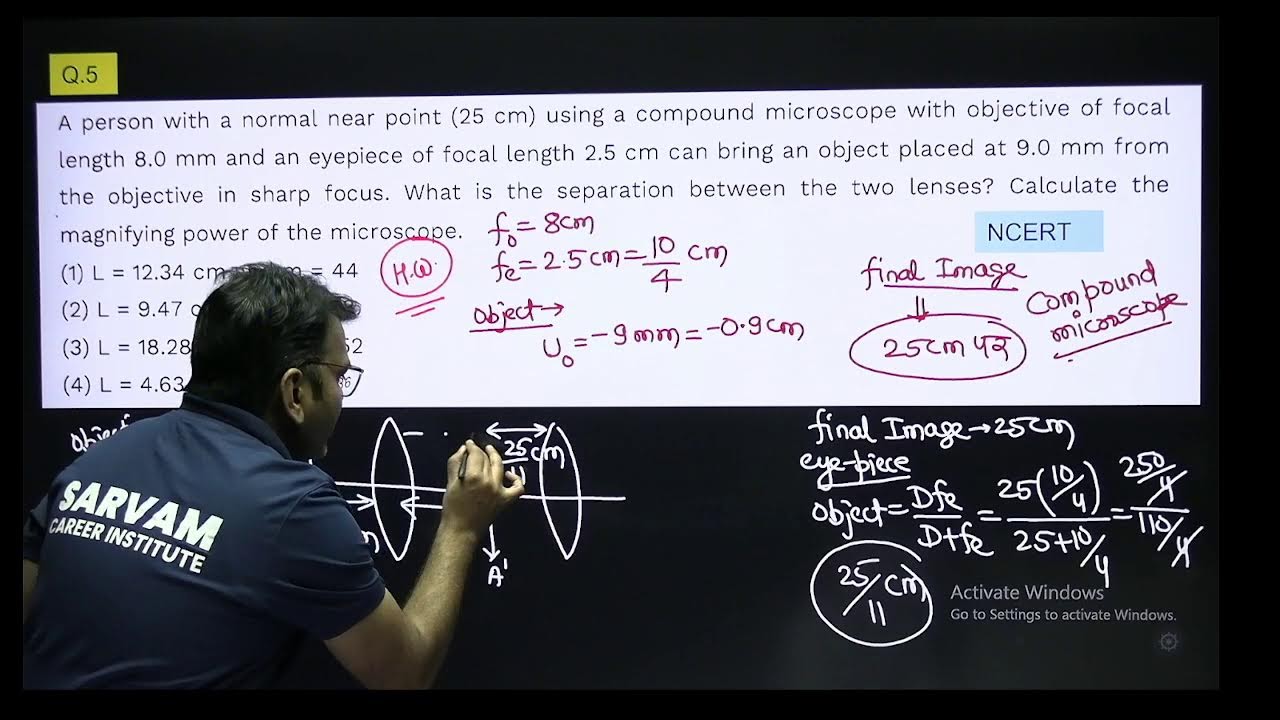 Q.5
A person with a normal near point (25 cm) using a compound microscope with objective of focal
length 8.0 mm and an eyepiece of focal length 2.5 cm can bring an object placed at 9.0 mm from
the objective in sharp focus. What is the separation between the two lenses? Calculate the
magnifying power of the microscope.
NCERT
(1) L = 12.34 cm = 44
(2) L = 9.47
(3) L = 18.28
(4) L = 4.63
H.W.
f₀ = 8cm
fe = 2.5cm = 10/4 cm
object →
U₀ = -9mm = -0.9cm
final Image
⇓
25cm पर
compound
microscope
25/11 cm
A'
final Image → 25cm
eye-piece
object = Dfe/D+fe = 25(10/4)/25+10/4 = 250/4/110/4
25/11 cm
SARVAM
CAREER INSTITUTE
Activate Windows
Go to Settings to activate Windows.